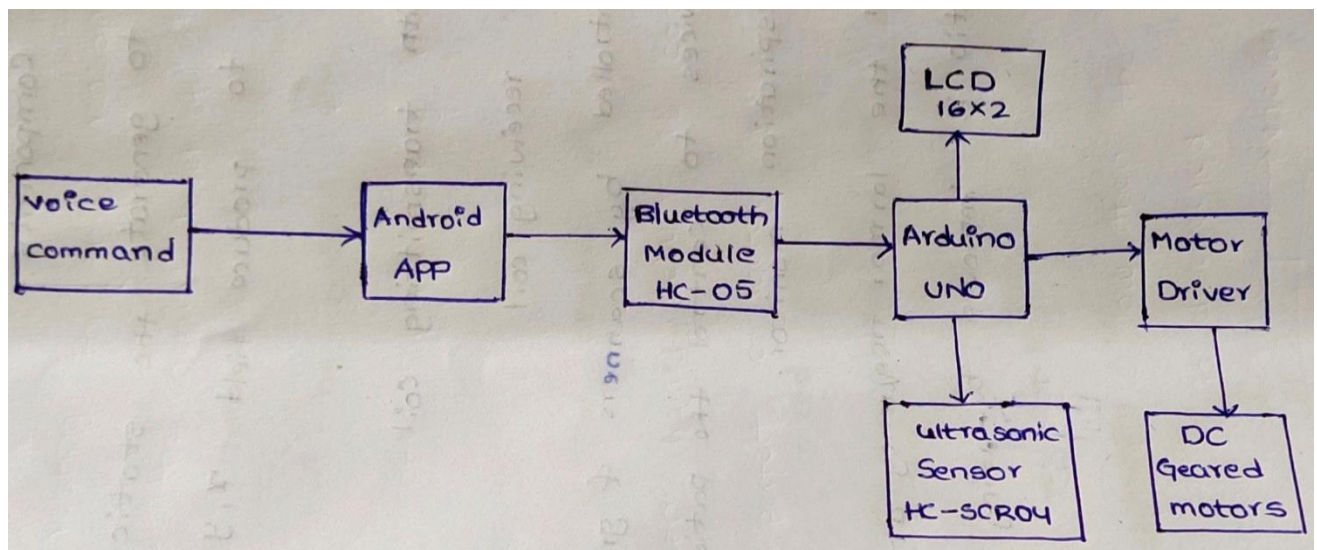 voice
command
Android
APP
Bluetooth
Module
HC-05
Arduino
UNO
LCD
16x2
Motor
Driver
ultrasonic
Sensor
HC-SCR04
DC
Geared
motors